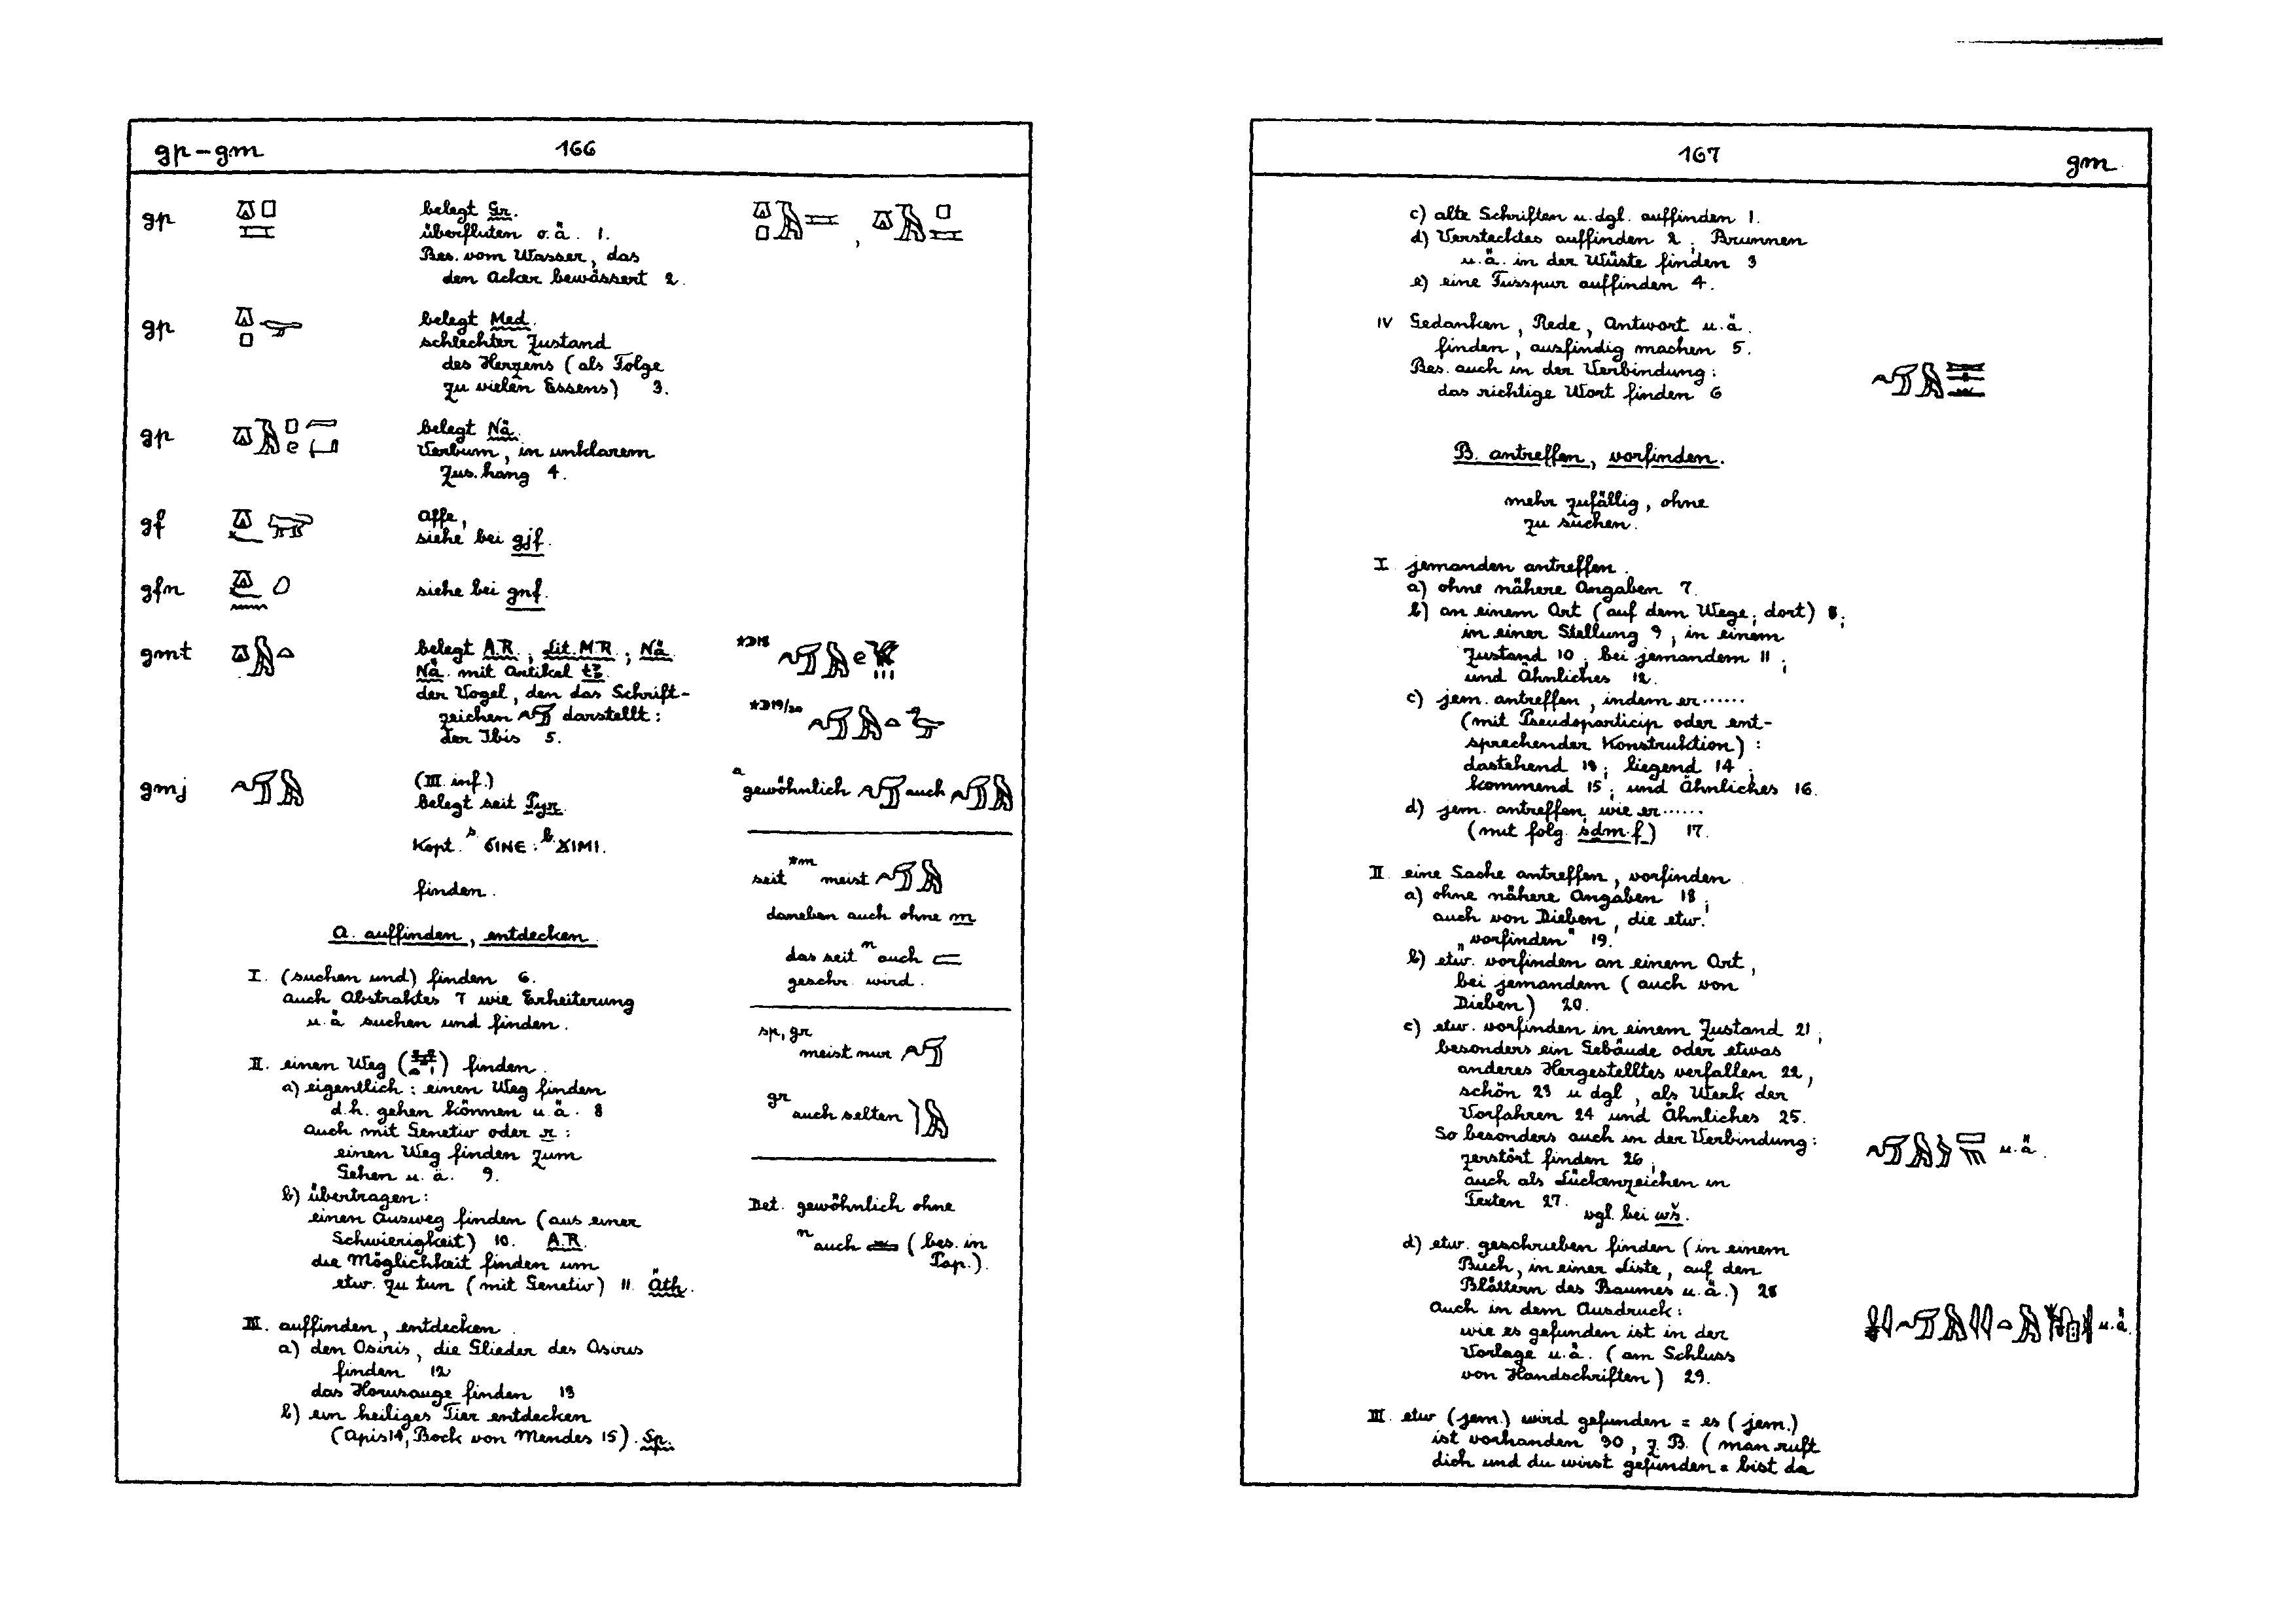 gp–gm 166
gp
belegt Gr.
überfluten o.ä. 1.
Bes. vom Wasser, das
den Acker bewässert 2.
gp
belegt Med.
schlechter Zustand
des Herzens (als Folge
zu vielen Essens) 3.
gp
belegt Nä.
Verbum, in unklarem
Zus.hang 4.
gf
Affe,
siehe bei gjf.
gfn
siehe bei gnf.
gmt
belegt A.R.; Lit. M.R.; Nä.
Nä. mit Artikel tꜣ.
der Vogel, den das Schrift-
zeichen darstellt:
der Ibis 5.
*D18
*D19/20
gmj
(III inf.)
belegt seit Pyr.
Kopt. s. ϭⲓⲛⲉ: b. ϫⲓⲙⲓ.
finden.
A. auffinden, entdecken.
I. (suchen und) finden 6.
auch Abstraktes 7 wie Erheiterung
u.ä. suchen und finden.
II. einen Weg ( ) finden.
a) eigentlich: einen Weg finden
d.h. gehen können u.ä. 8
Auch mit Genetiv oder r:
einen Weg finden zum
Gehen u.ä. 9.
b) übertragen:
einen Ausweg finden (aus einer
Schwierigkeit) 10. A.R.
die Möglichkeit finden um
etw. zu tun (mit Genetiv) 11. Äth.
III. auffinden, entdecken
a) den Osiris, die Glieder des Osiris
finden 12
das Horusauge finden 13
b) ein heiliges Tier entdecken
(Apis 14, Bock von Mendes 15). Sp.
a gewöhnlich auch
seit *m meist
daneben auch ohne m
das seit n auch
geschr. wird.
sp, gr
meist nur
gr
auch selten
Det. gewöhnlich ohne
n auch (bes. in
Pap.).
167 gm
c) alte Schriften u.dgl. auffinden 1.
d) Verstecktes auffinden 2; Brunnen
u.ä. in der Wüste finden 3
e) eine Fusspur auffinden 4.
IV Gedanken, Rede, Antwort u.ä.
finden, ausfindig machen 5.
Bes. auch in der Verbindung:
das richtige Wort finden 6
B. antreffen, vorfinden.
mehr zufällig, ohne
zu suchen.
I jemanden antreffen.
a) ohne nähere Angaben 7.
b) an einem Ort (auf dem Wege; dort) 8;
in einer Stellung 9; in einem
Zustand 10; bei jemandem 11;
und Ähnliches 12.
c) jem. antreffen, indem er……
(mit Pseudoparticip oder ent-
sprechender Konstruktion):
dastehend 13; liegend 14;
kommend 15; und Ähnliches 16.
d) jem. antreffen, wie er……
(mit folg. sdm.f) 17.
II eine Sache antreffen, vorfinden
a) ohne nähere Angaben 18;
auch von Dieben, die etw.
„vorfinden" 19.
b) etw. vorfinden an einem Ort,
bei jemandem (auch von
Dieben) 20.
c) etw. vorfinden in einem Zustand 21;
besonders ein Gebäude oder etwas
anderes Hergestelltes verfallen 22,
schön 23 u dgl, als Werk der
Vorfahren 24 und Ähnliches 25.
So besonders auch in der Verbindung: u.ä.
zerstört finden 26;
auch als Lückenzeichen in
Texten 27. vgl. bei wš.
d) etw. geschrieben finden (in einem
Buch, in einer Liste, auf den
Blättern des Baumes u.ä.) 28
Auch in dem Ausdruck:
wie es gefunden ist in der u.ä.
Vorlage u.ä. (am Schluss
von Handschriften) 29.
III etw (jem.) wird gefunden = es (jem.)
ist vorhanden 30, z.B. (man ruft
dich und du wirst gefunden = bist da